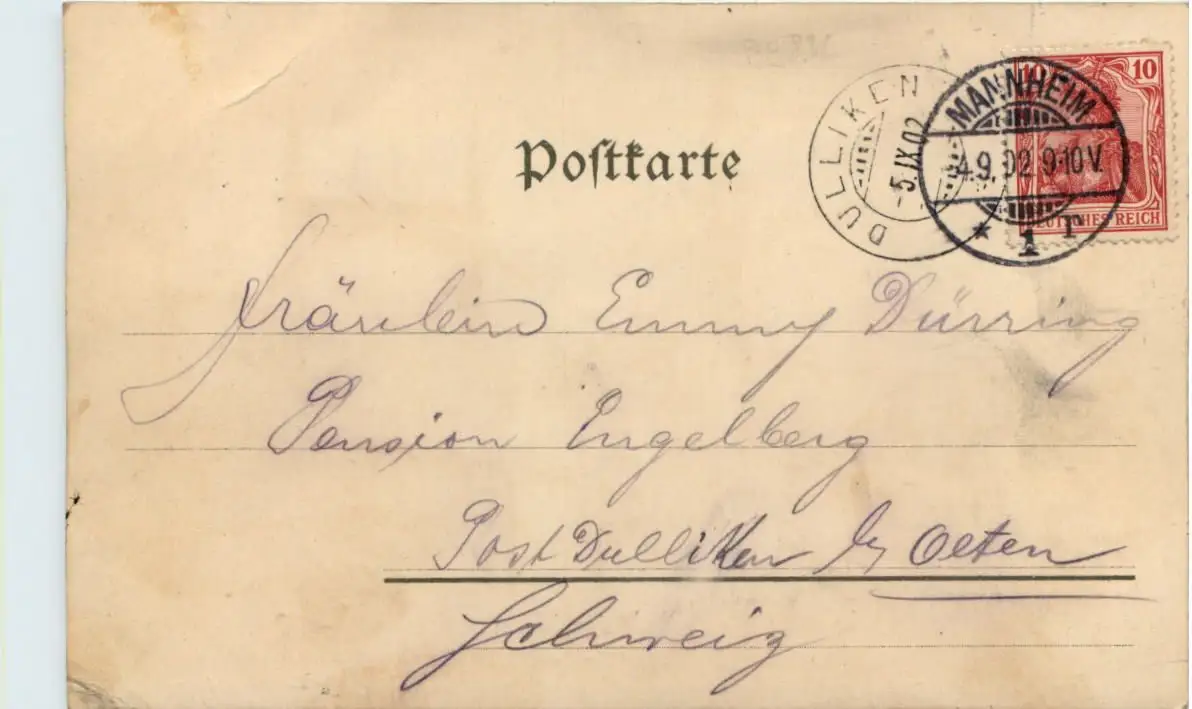 Postkarte
DULLIKEN
-5.IX.02
MANNHEIM
4.9.02 9-10V.
* 1 r
10 10
DEUTSCHES REICH
Fräulein Emmy Dürring
Pension Engelberg
Post Dulliken by Olten
Schweiz